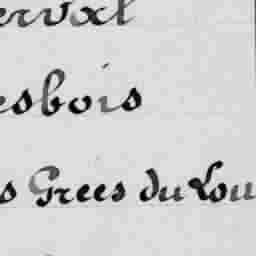 erval
esbois
s Grees du Lou